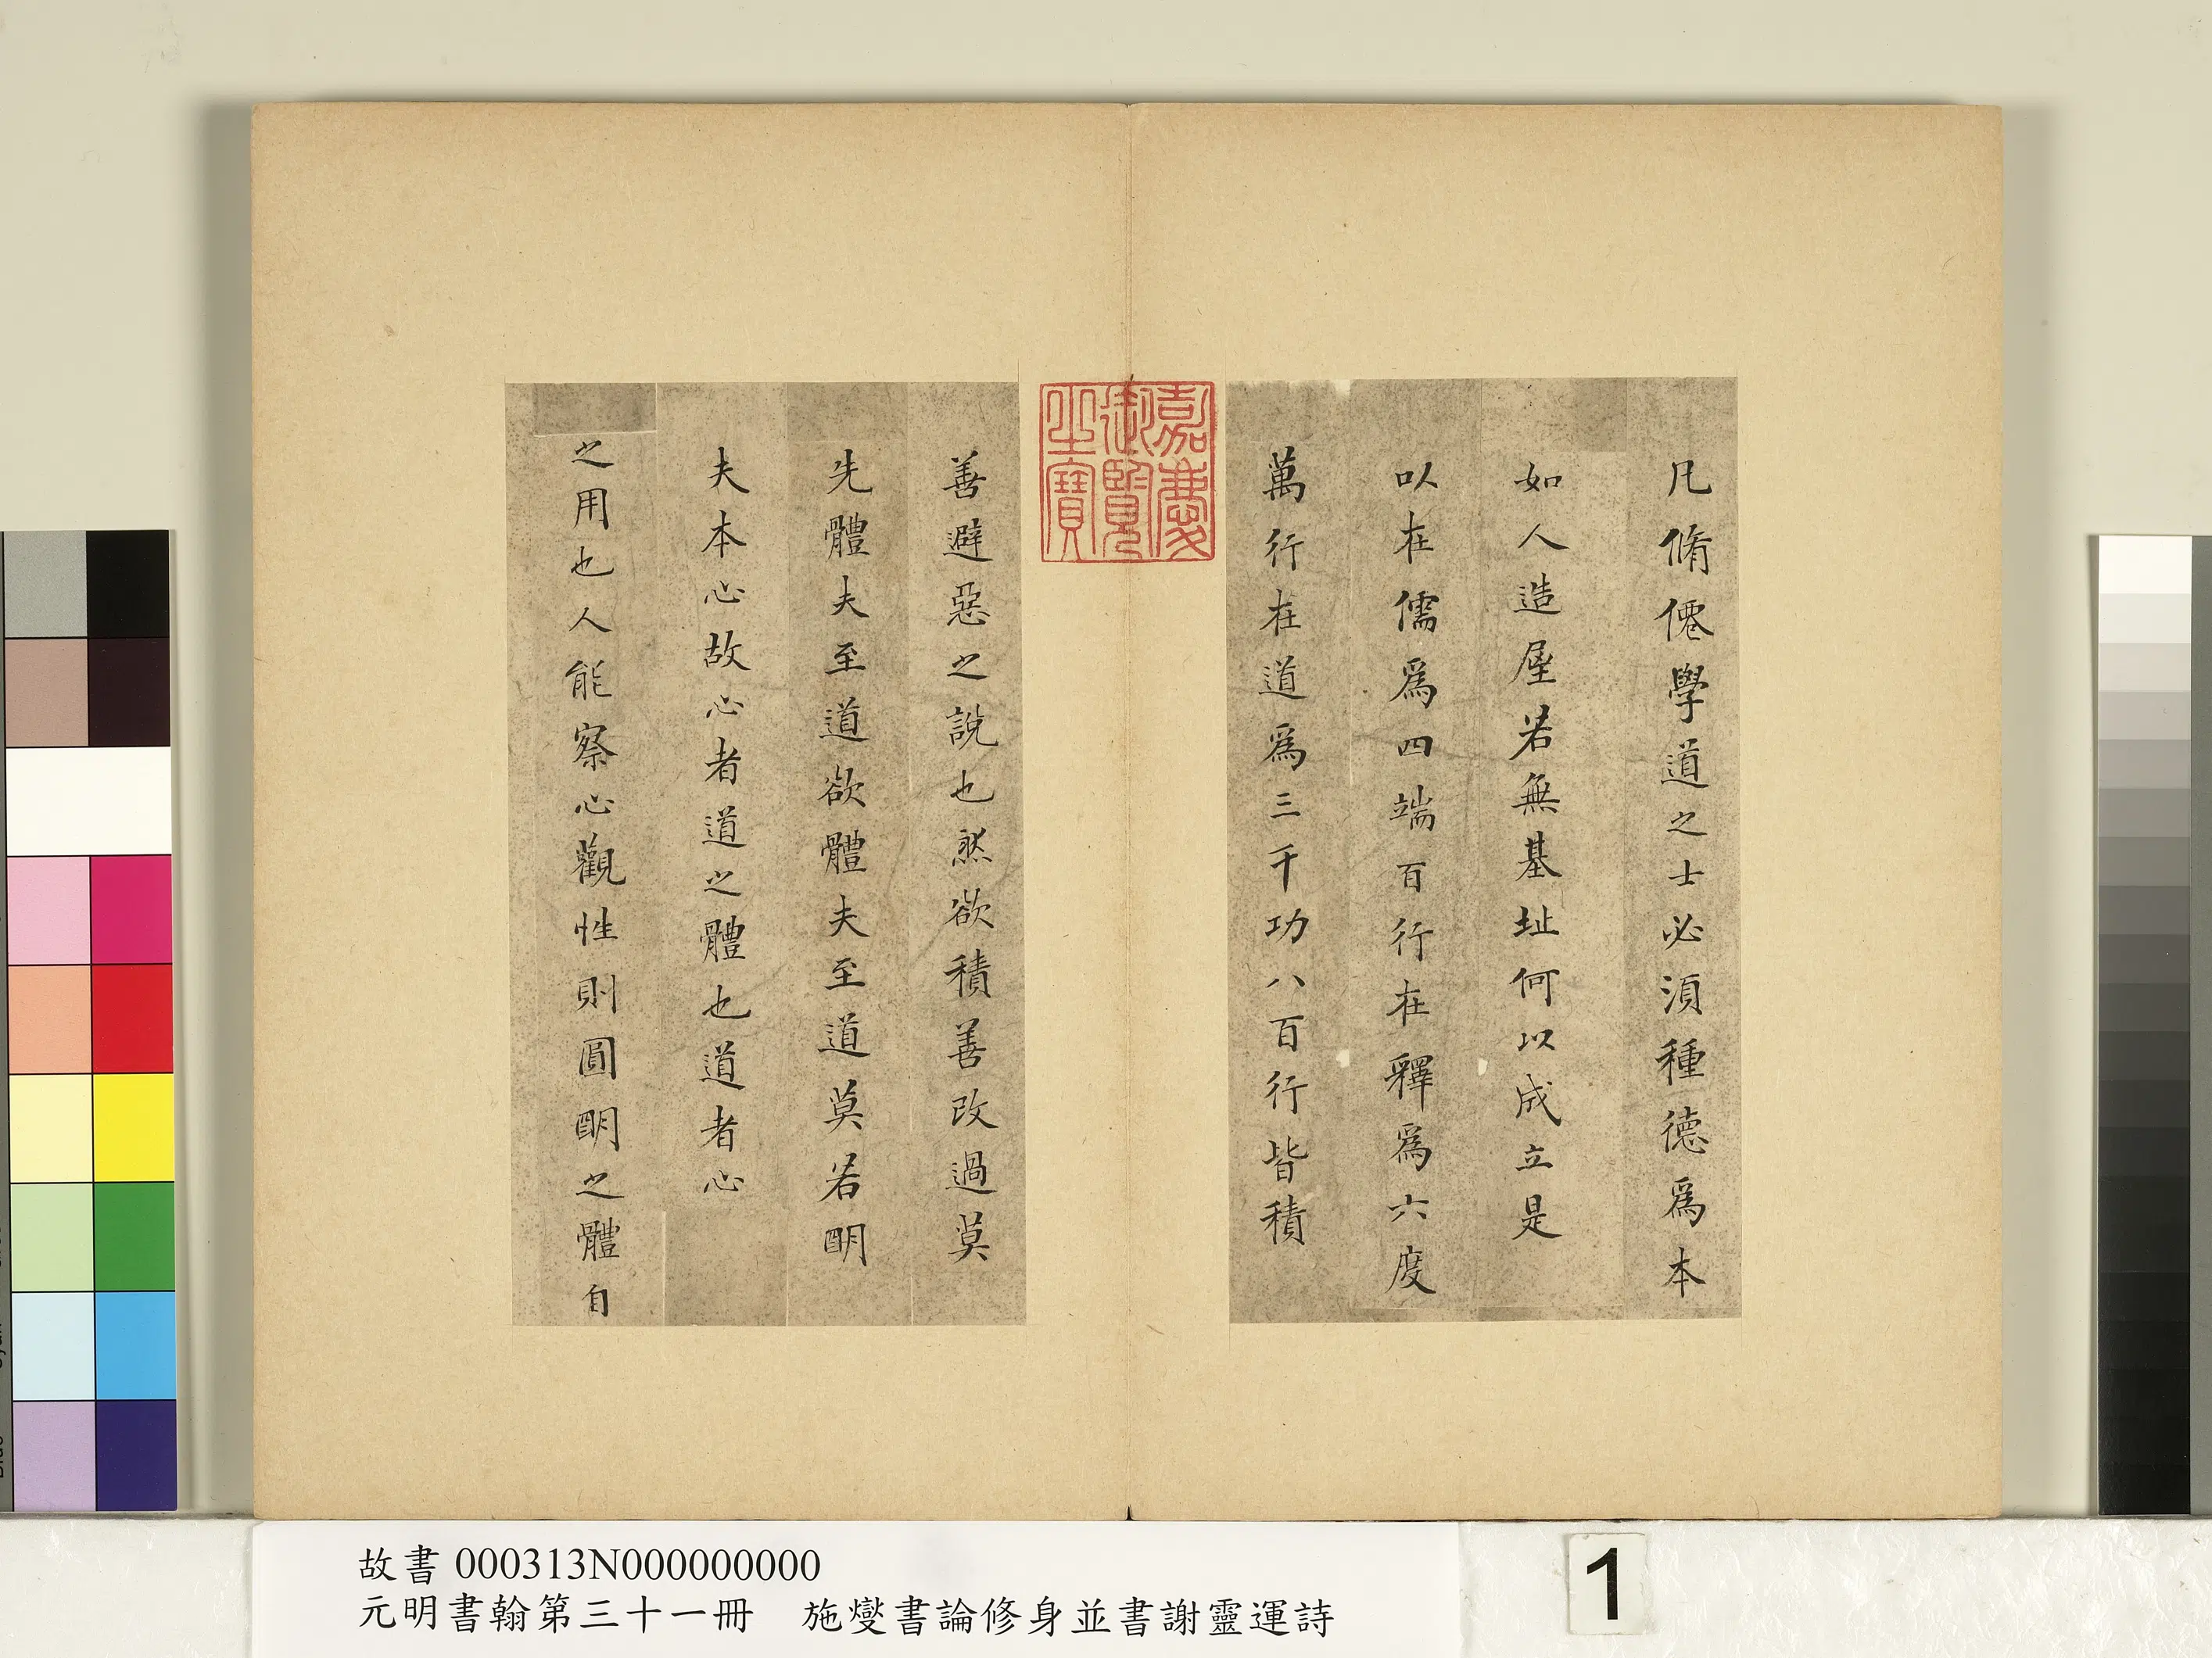 凡脩僊學道之士必須種德爲本
如人造屋若無基址何以成立是
以在儒爲四端百行在釋爲六度
萬行在道爲三千功八百行皆積
嘉慶
御覽
之寶
善避惡之說也然欲積善改過莫
先體夫至道欲體夫至道莫若明
夫本心故心者道之體也道者心
之用也人能察心觀性則圓明之體自
故書 000313N000000000
元明書翰第三十一冊 施燮書論修身並書謝靈運詩
1